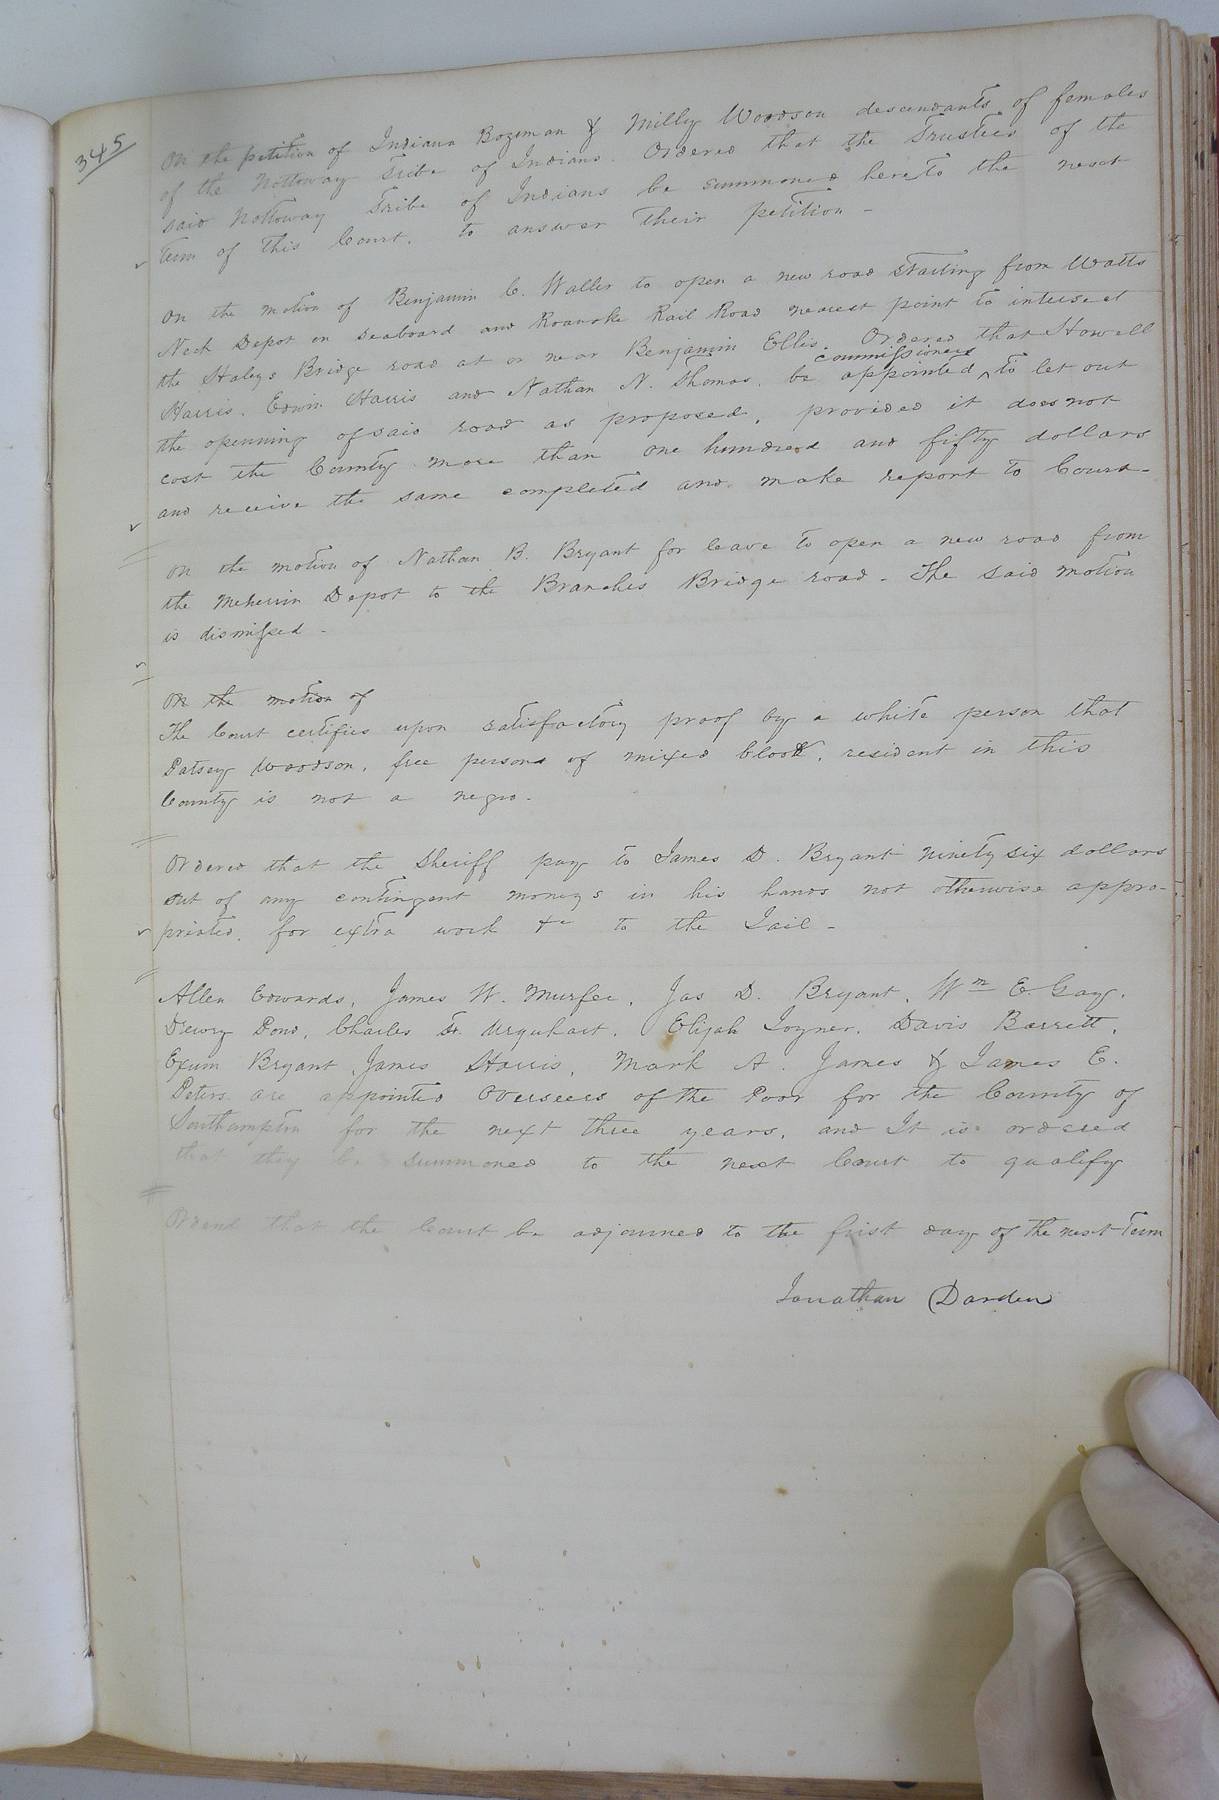 345
On the petition of Indiana Bozeman & Milly Woodson descendants of females
of the Nottoway Tribe of Indians. Ordered that the Trustees of the
said Nottoway Tribe of Indians be summoned here to the next
Term of this Court, to answer their petition -
On the motion of Benjamin C. Waller to open a new road starting from Watts
Neck Depot on Seaboard and Roanoke Rail Road nearest point to intersect
the Haleys Bridge road at or near Benjamin Ellis. Ordered that Howell
Harris, Edwin Harris and Nathan N. Thomas, be appointed ^commissioners to let out
the openning of said road as proposed, provided it does not
cost the County more than one hundred and fifty dollars
and receive the same completed and make report to Court -
On the motion of Nathan B. Bryant for leave to open a new road from
the Meherrin Depot to the Branches Bridge road - The said motion
is dismissed -
On the motion of
The Court certifies upon satisfactory proof by a white person that
Patsey Woodson, free person of mixed blood, resident in this
County is not a negro -
Ordered that the Sheriff pay to James D. Bryant ninety six dollars
out of any contingent moneys in his hands not otherwise appro-
priated, for extra work &c to the Jail -
Allen Edwards, James W. Murfee, Jas D. Bryant, Wm E. Gay,
Drewry Pond, Charles F. Urquhart, Elijah Joyner, Davis Barrett,
Exum Bryant, James Harris, Mark A. James & James E.
Peters are appointed Overseers of the Poor for the County of
Southampton for the next three years, and It is ordered
that they be summoned to the next Court to qualify
Ordered that the Court be adjourned to the first day of the next Term
Jonathan Darden